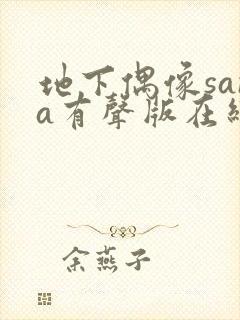 地下偶像sa
a有聲版在
余燕子